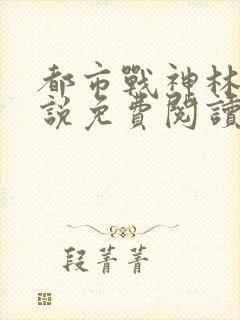 都市戰神林
說免費閱讀
段菁菁